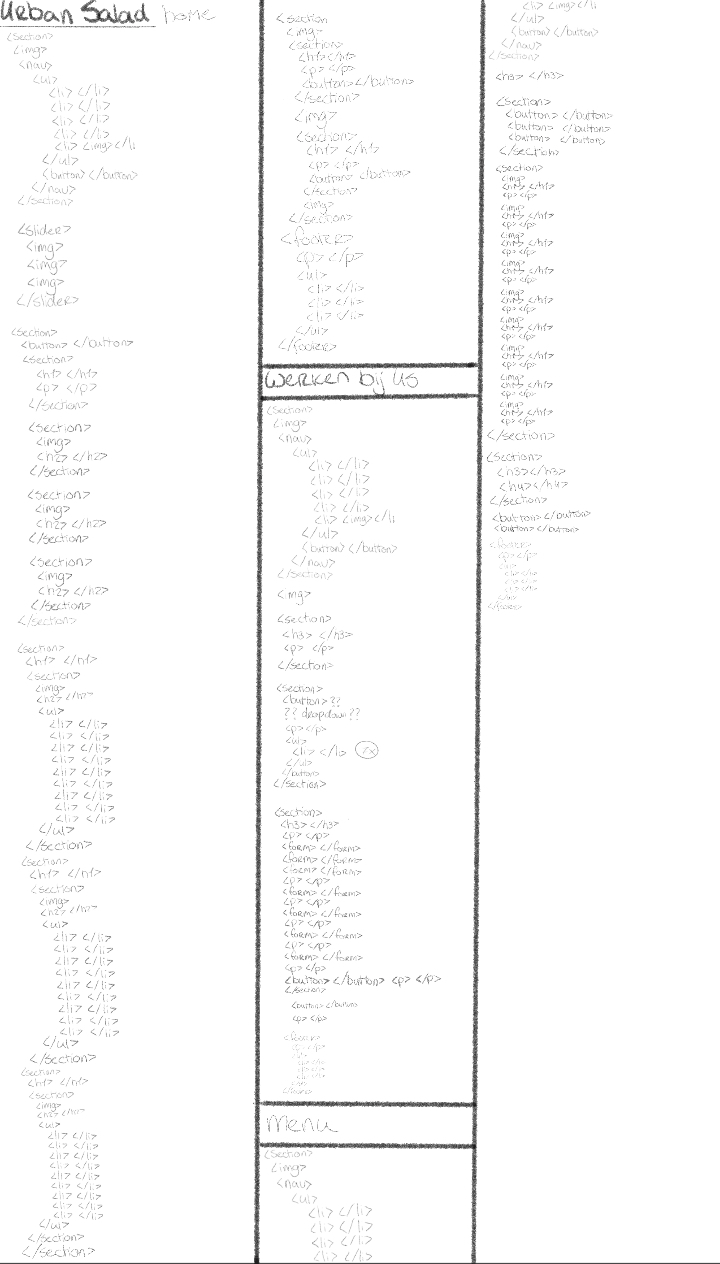 Urban Salad home
<section>
<img>
<nav>
<ul>
<li> </li>
<li> </li>
<li> </li>
<li> </li>
<li> <img></li
</ul>
<button> </button>
</nav>
</section>
<slider>
<img>
<img>
<img>
</slider>
<section>
<button> </button>
<section>
<h1> </h1>
<p> </p>
</section>
<section>
<img>
<h2> </h2>
</section>
<section>
<img>
<h2> </h2>
</section>
<section>
<img>
<h2> </h2>
</section>
</section>
<section>
<h1> </h1>
<section>
<img>
<h2> </h2>
<ul>
<li> </li>
<li> </li>
<li> </li>
<li> </li>
<li> </li>
<li> </li>
<li> </li>
<li> </li>
<li> </li>
</ul>
</section>
<section>
<h1> </h1>
<section>
<img>
<h2> </h2>
<ul>
<li> </li>
<li> </li>
<li> </li>
<li> </li>
<li> </li>
<li> </li>
<li> </li>
<li> </li>
<li> </li>
</ul>
</section>
<section>
<h1> </h1>
<section>
<img>
<h2> </h2>
<ul>
<li> </li>
<li> </li>
<li> </li>
<li> </li>
<li> </li>
<li> </li>
<li> </li>
<li> </li>
</ul>
</section>
</section>
<section
<img>
<section>
<h1></h1>
<p> </p>
<button></button>
</section>
<img>
<section>
<h1> </h1>
<p> </p>
<button> </button>
</section>
<img>
</section>
<footer>
<p> </p>
<ul>
<li> </li>
<li> </li>
<li> </li>
</ul>
</footer>
Werken bij us
<section>
<img>
<nav>
<ul>
<li> </li>
<li> </li>
<li> </li>
<li> </li>
<li> <img></li
</ul>
<button> </button>
</nav>
</section>
<img>
<section>
<h3> </h3>
<p> </p>
</section>
<section>
<button> ??
?? dropdown ??
<p> </p>
<ul>
<li> </li>
</ul>
</button>
</section>
<section>
<h3> </h3>
<p> </p>
<form> </form>
<form> </form>
<form> </form>
<p> </p>
<form> </form>
<p> </p>
<form> </form>
<p> </p>
<form> </form>
<p> </p>
<form> </form>
<p> </p>
<button> </button> <p> </p>
</section>
<button> </button>
<p> </p>
<footer>
Menu
<section>
<img>
<nav>
<ul>
<li> </li>
<li> </li>
<li> </li>
<li> </li>
<li> <img></li
</ul>
<button> </button>
</nav>
</section>
<h3> </h3>
<section>
<button> </button>
<button> </button>
<button> </button>
</section>
<section>
<img>
<h1> </h1>
<p> </p>
<img>
<h1> </h1>
<p> </p>
<img>
<h1> </h1>
<p> </p>
<img>
<h1> </h1>
<p> </p>
<img>
<h1> </h1>
<p> </p>
<img>
<h1> </h1>
<p> </p>
<img>
<h1> </h1>
<p> </p>
<img>
<h1> </h1>
<p> </p>
</section>
<section>
<h3></h3>
<h4></h4>
</section>
<button> </button>
<button> </button>
<footer>
<p></p>